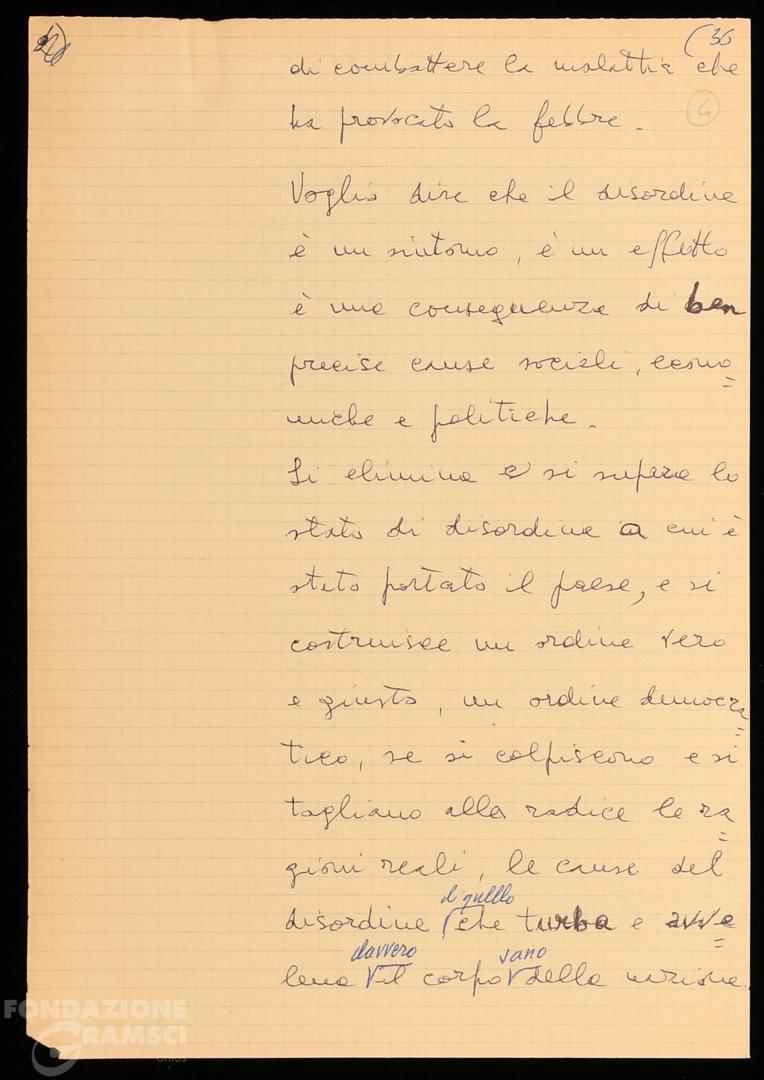 (36
di combattere la malattia che
ha provocato la febbre.
4
Voglio dire che il disordine
è un sintomo, è un effetto
è una conseguenza di ben
precise cause sociali, econo=
miche e politiche.
Si elimina e si supera lo
stato di disordine a cui è
stato portato il paese, e si
costruisce un ordine vero
e giusto, un ordine democra=
tico, se si colpiscono e si
tagliano alla radice le ra=
gioni reali, le cause del
di quello
disordine che turba e avve=
davvero sano
lena il corpo della nazione
FONDAZIONE
GRAMSCI
onlus